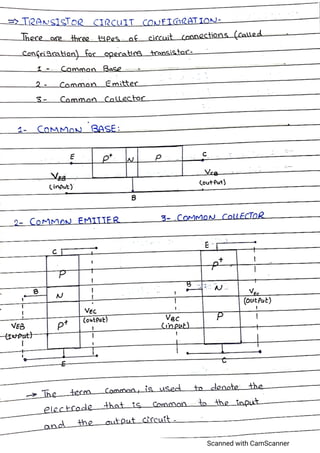 => TRANSISTOR CIRCUIT CONFIGRATION-
There are three types of circuit connections (called
Configration) for operating transistor.
1 - Common Base -
2 - Common Emitter
3- Common Collector
1- COMMON BASE:
E P+ N P C
VEB VCB
(input) (output)
B
2- COMMON EMITTER 3- COMMON COLLECTOR
C E
P P+
B N B N
VEC (output)
VEB P+ (output) VBC P
(INPut) (input)
E C
→ The term Common, is used to denote the
electrode that is common to the input
and the output circuit.
Scanned with CamScanner